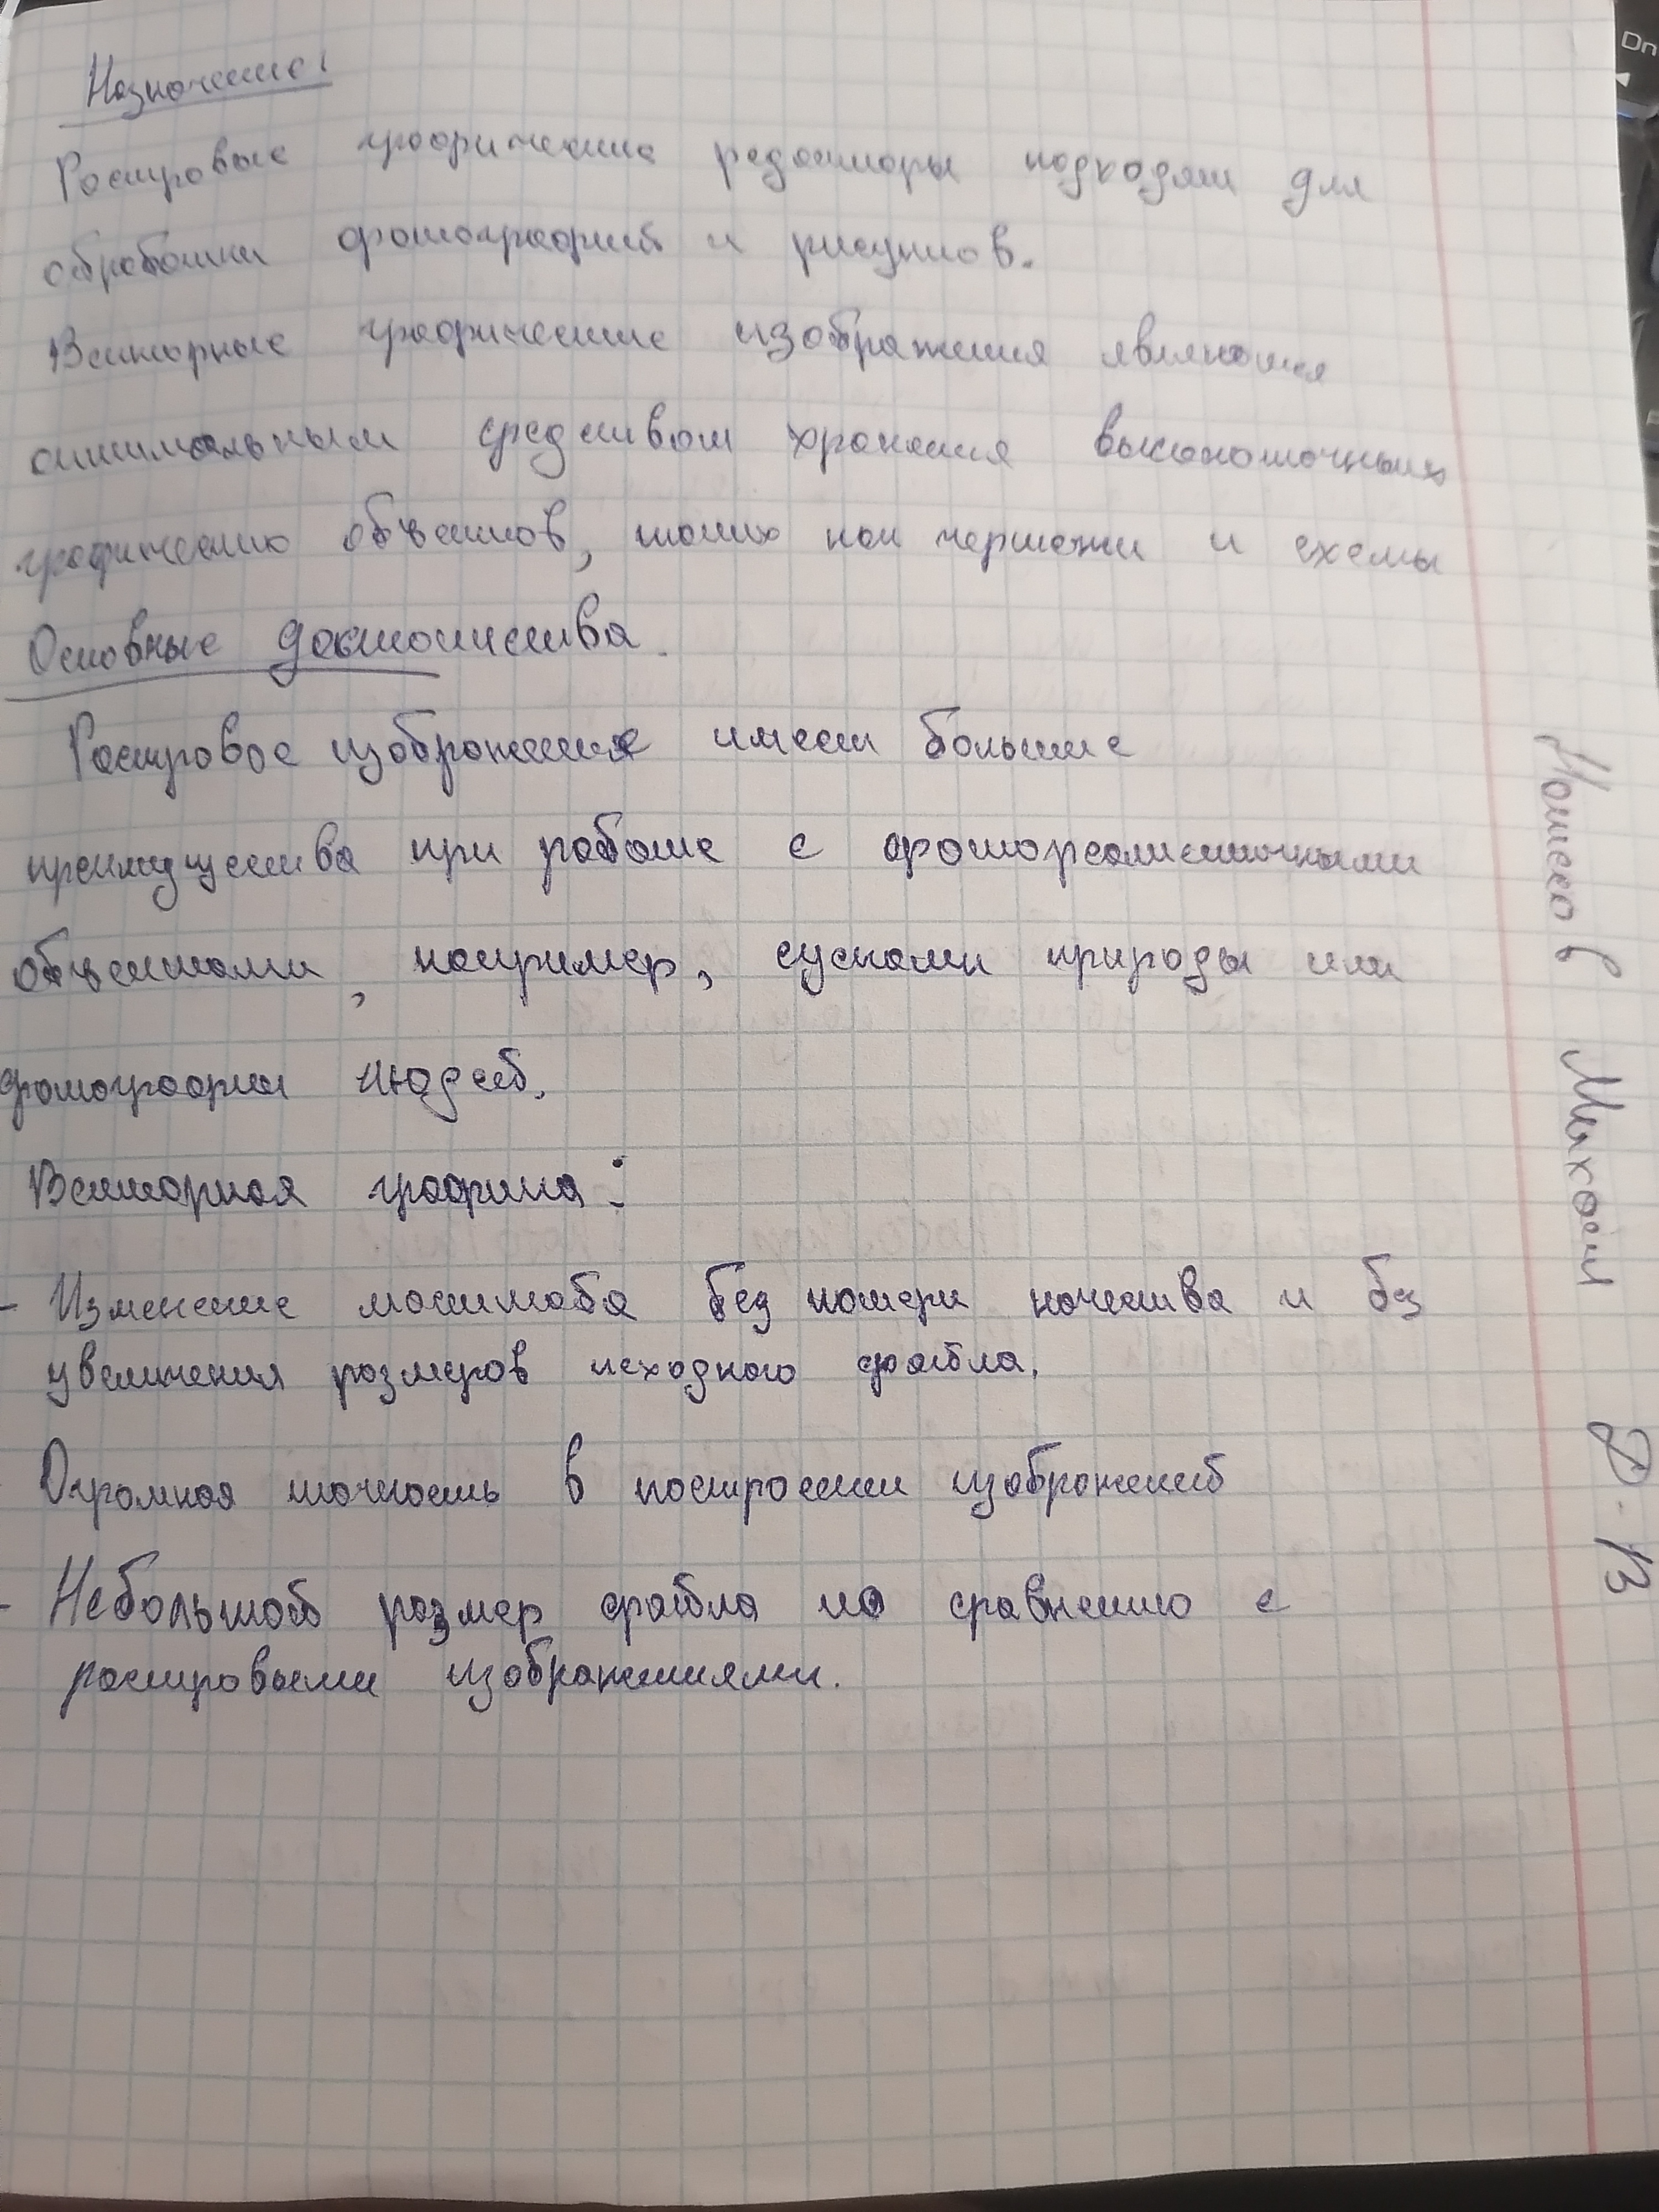 Назначение:
Растровые графические редакторы подходят для
обработки фотографий и рисунков.
Векторные графические изображения являются
оптимальным средством хранения высокоточных
графических объектов, таких как чертежи и схемы
Основные достоинства.
Растровое изображение имеет большие
преимущества при работе с фотореалистичными
объектами, например, сценами природы или
фотографии людей.
Векторная графика:
- Изменение масштаба без потери качества и без
увеличения размеров исходного файла.
- Огромная точность в построении изображений
- Небольшой размер файла по сравнению с
растровыми изображениями.
Михаил
8-